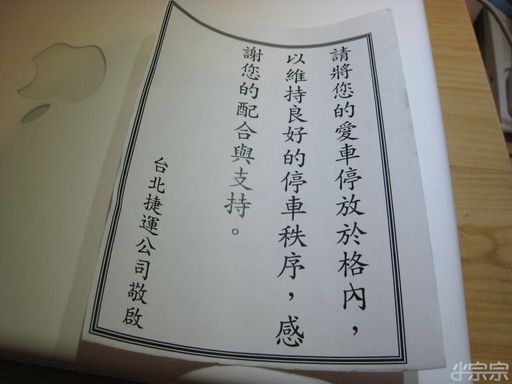 請將您的愛車停放於格內，
以維持良好的停車秩序，感
謝您的配合與支持。
台北捷運公司敬啟